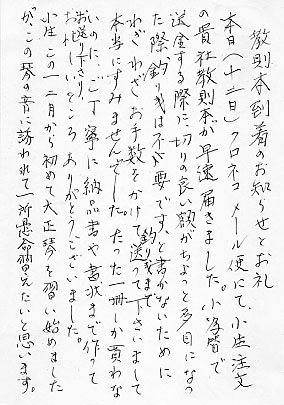 教則本到着のお知らせとお礼
本日(十二日)クロネコメール便にて、小生注文
の貴社教則本が早速届きました。小為替で
送金する際に、切りの良い額がちょっと多目になっ
た際、釣り銭は不必要ですと書かないために
わざわざお手数をかけて釣り銭まで送って下さいまして
本当にすみませんでした。たった一冊しか買わな
いのに、ご丁寧に納品書や書状まで作って
お送り下さり、
お忙しいところありがとうございました。
小生この一二月から初めて大正琴を習い始めました
が、この琴の音に誘われて一所懸命習えたいと思います。